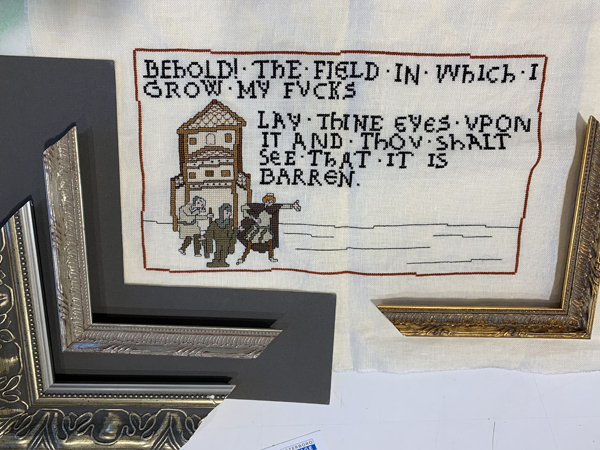 BEhOLD!·ThE·FIELD·IN·Which·I
GROW·MY FVCKS
LAY·ThINE EYES·VPON
IT AND·ThOV·ShALT
SEE·ThAT·IT IS
BARREN.